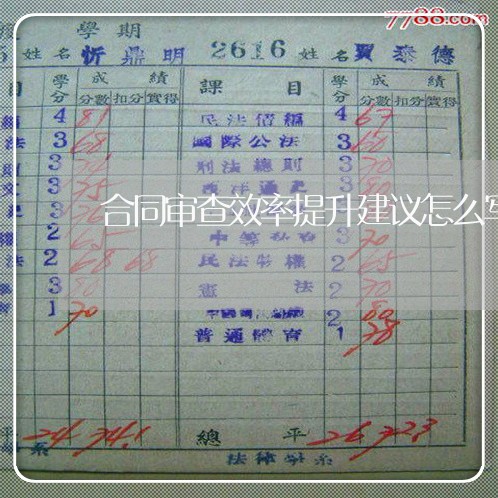 7788.com
學期
姓名 忻鼎明 2616 姓名 賈泰德
目 學分 成績 課目 學分 成績
分數 扣分 實得 分數 扣分 實得
4 81 民法債編 4 67
法 3 68 國際公法 3 60
3 刑法總則 3 70
3 75 西洋通史 3 80
合同审查效率提升建议怎么写
2 65 3 70
法 2 68 68 民法物權 2 65
3 80 憲法 2 70
1 70 2 80
普通體育 1 78
平 24 74.1 總平 26 72.3
系 法律學系